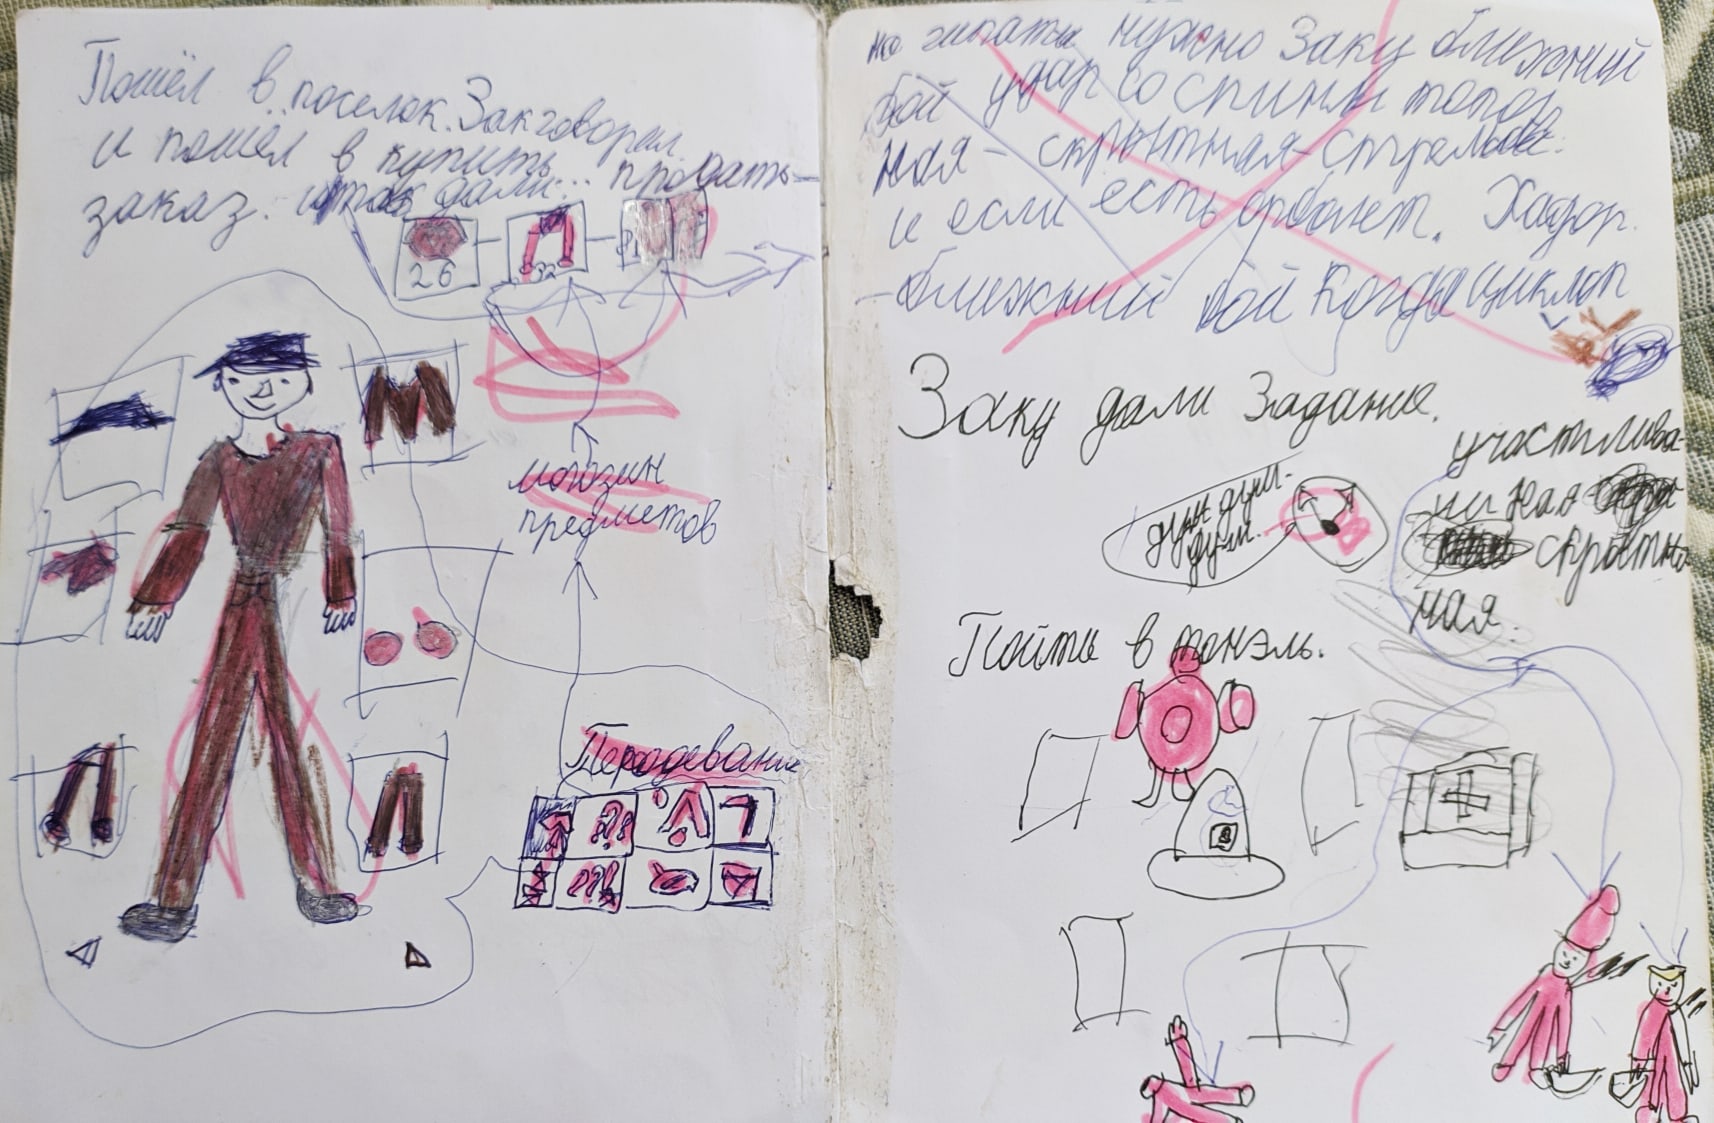 Пошёл в посёлок. Зак говорил
и пошёл в купить продать
заказ. и так дали...
26
32
могозин
предметов
Перодевание
но гипаты нужно Заку ближний
бой удар со спины топор
ная - скрытная - стрельба.
и если есть орбалет. Хафор.
- ближний бой Когда циклоп
Заку дали Задание.
дум дум
дум.
Пойти в тонэль.